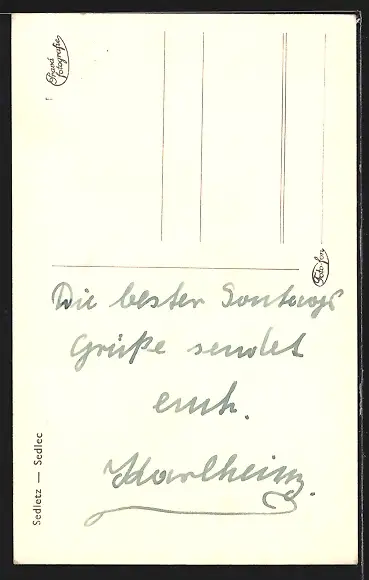 Pravá
fotografie
Foto-fon
Die besten Sontags
Grüße sendet
euch.
Karlheinz.
Sedletz — Sedlec